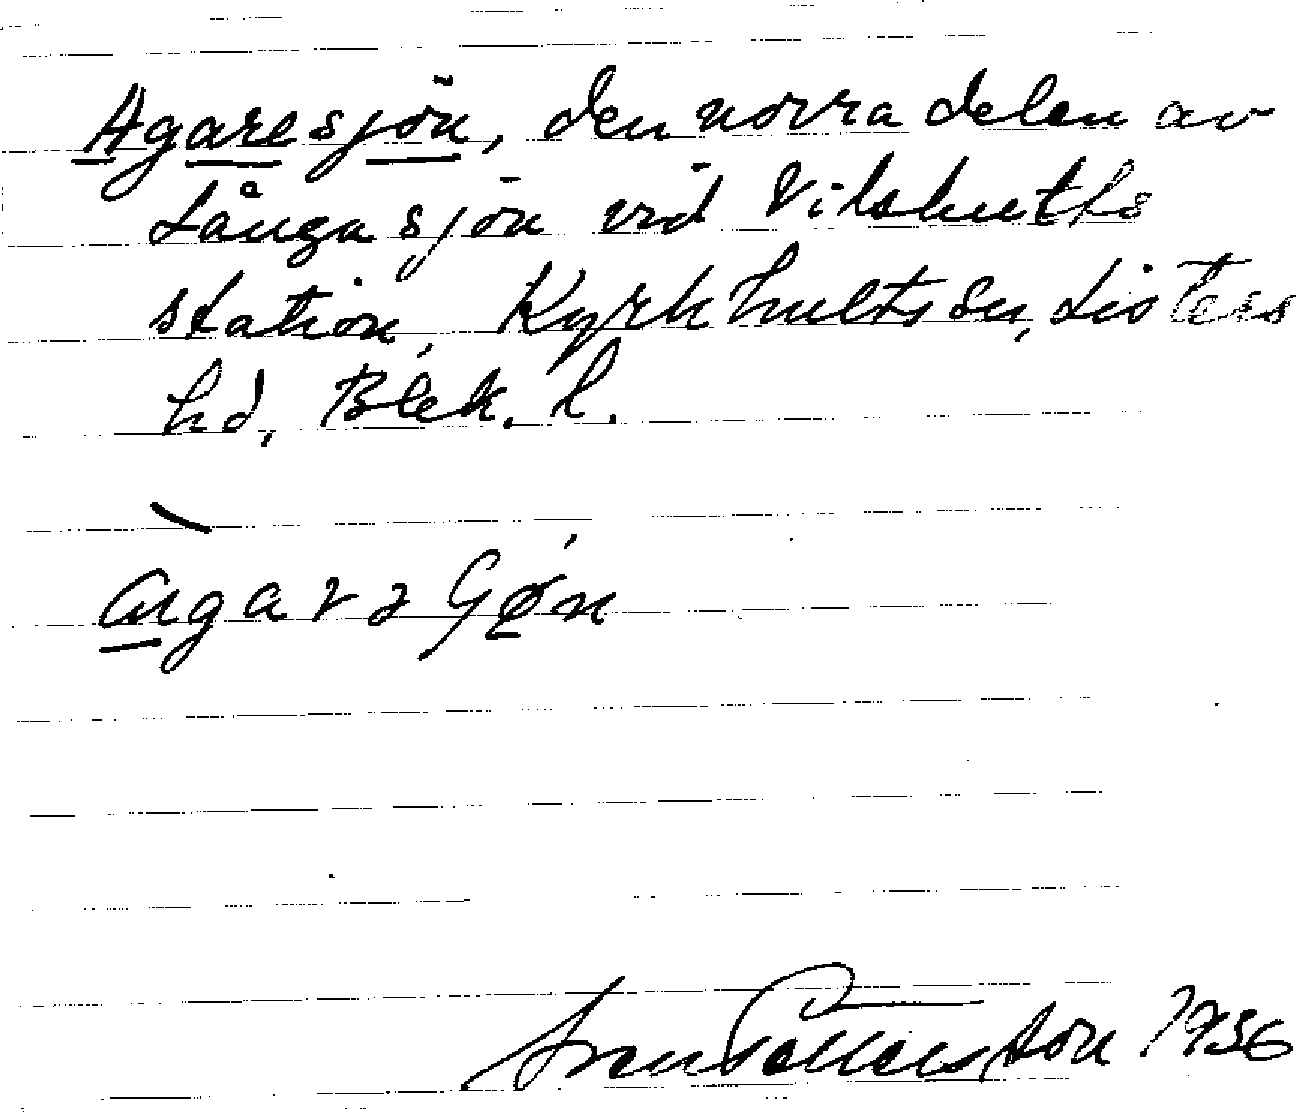 Agaresjön, den norra delen av
Långasjön vid Vilshults
station, Kyrkhults sn, Listers
hd, Blek. l.
Sven 1936